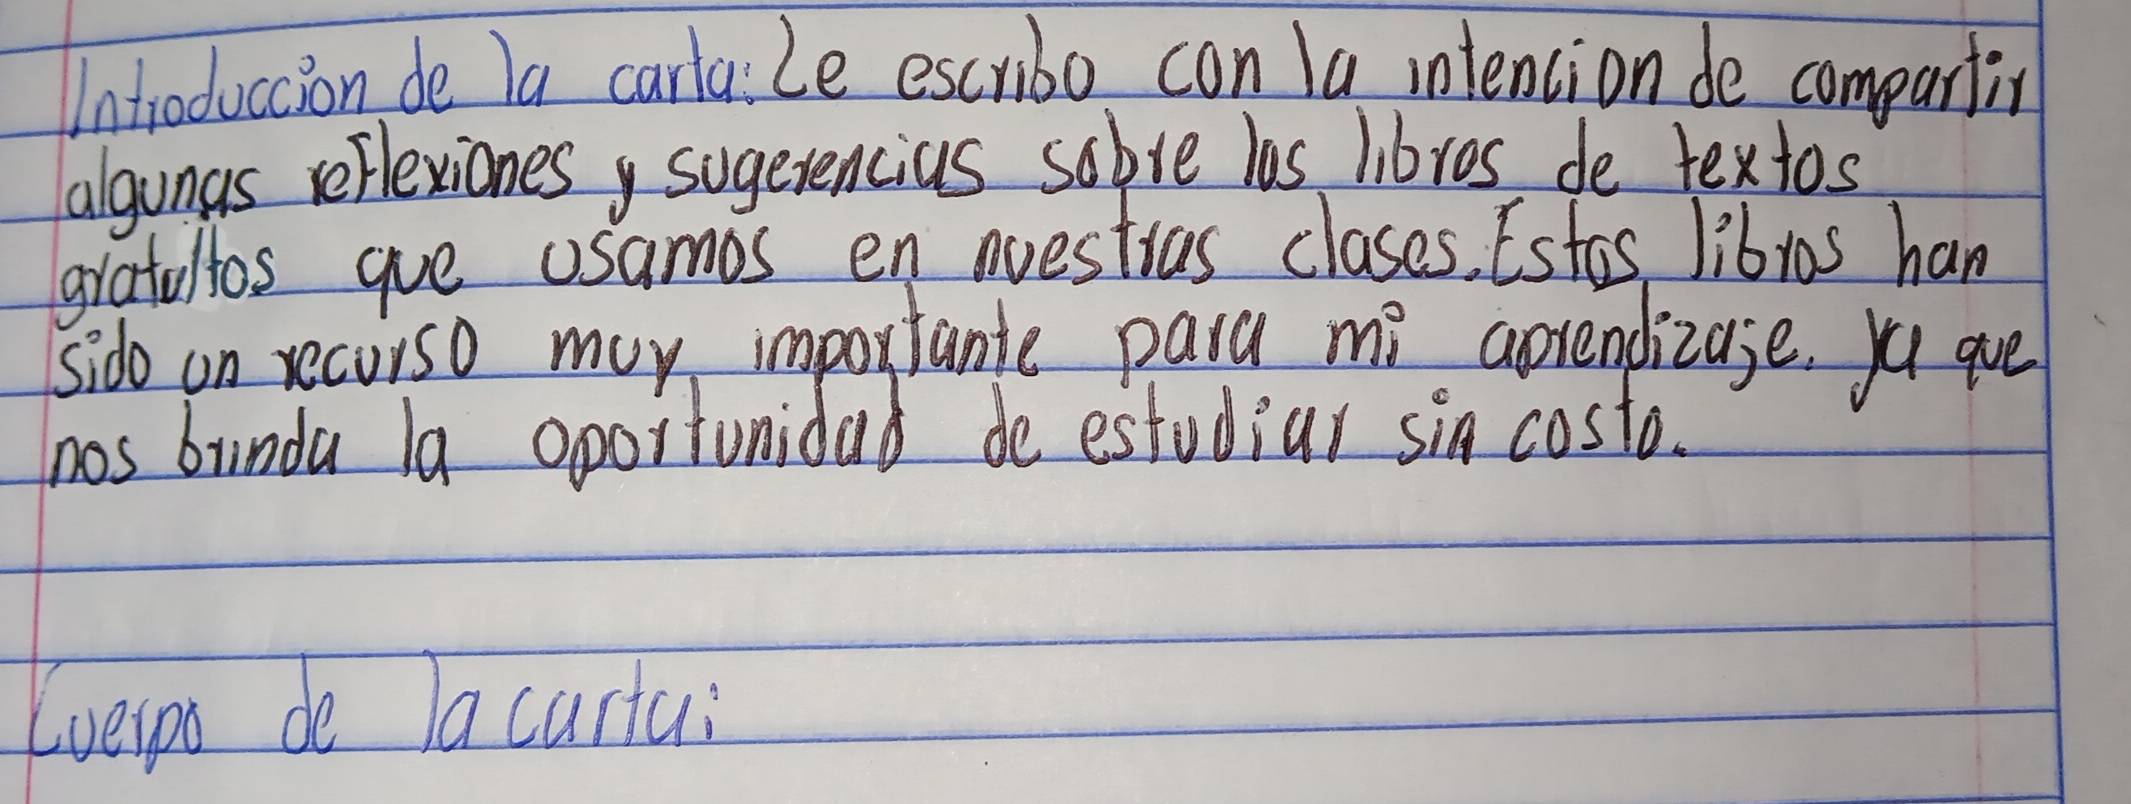 Introduccion de la carta: Le escribo con la intencion de compartir
algunas reflexiones y sugerencias sobre los libros de textos
gratuitos que usamos en nuestras clases. Estos libros han
sido un recurso muy importante para mi aprendizaje. ya que
nos brinda la oportunidad de estudiar sin costo.
Cuerpo de la carta: